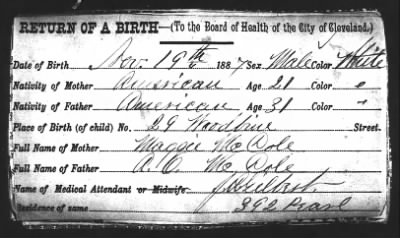 RETURN OF A BIRTH—(To the Board of Health of the City of Cleveland.)
Date of Birth Nov. 19th 1887 Sex Male Color White
Nativity of Mother American Age 21 Color "
Nativity of Father American Age 31 Color "
Place of Birth (of child) No. 29 Woodbine Street.
Full Name of Mother Maggie McDole
Full Name of Father A. O. McDole
Name of Medical Attendant or Midwife.
Residence of same 392 Pearl